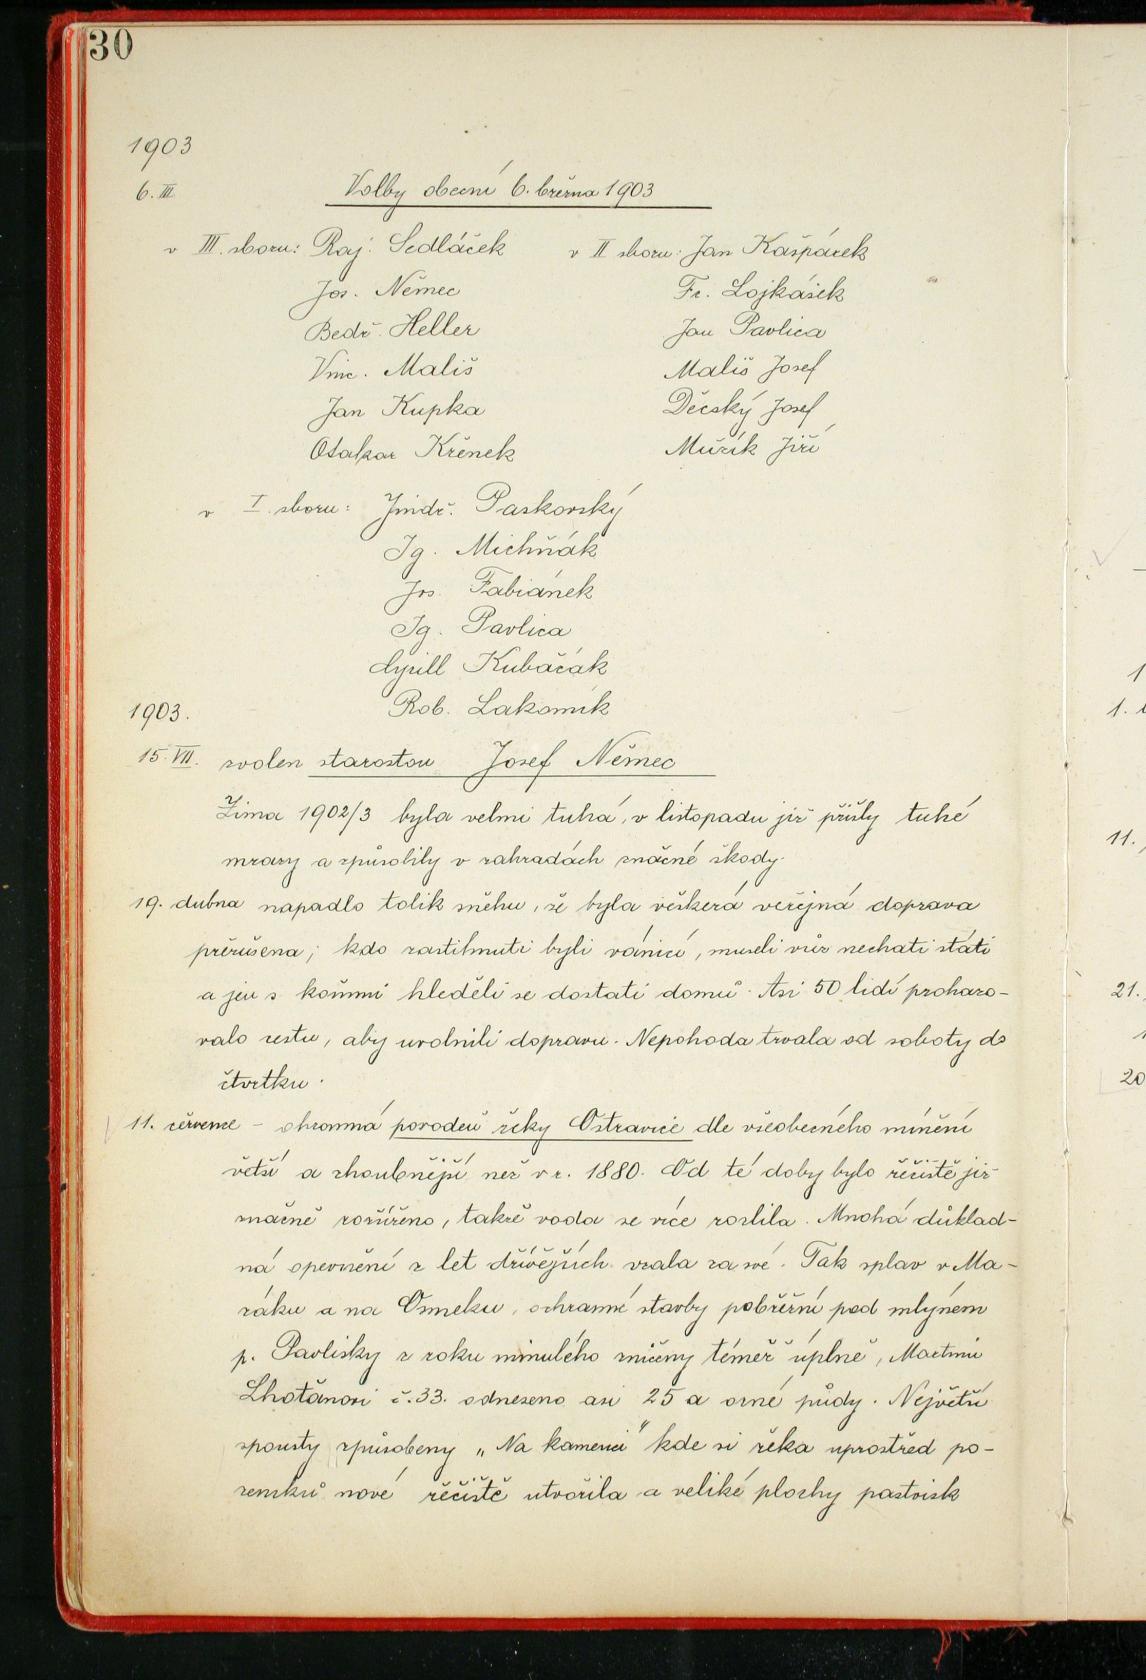 30
1903
6. III Volby obecní 6. března 1903
v III. sboru: Raj. Sedláček v II sboru: Jan Kašpárek
Jos. Němec Fr. Lojkásek
Bedř. Heller Jan Pavlica
Vinc. Mališ Mališ Josef
Jan Kupka Děcský Josef
Otakar Křenek Mužík Jiří
v I. sboru: Jindř. Paskovský
Ig. Michňák
Jos. Fabiánek
Ig. Pavlica
Cyrill Kubáčák
Rob. Lakomík
1903.
15. VII. zvolen starostou Josef Němec
Zima 1902/3 byla velmi tuhá, v listopadu již přišly tuhé
mrazy a způsobily v zahradách značné škody.
19. dubna napadlo tolik sněhu, že byla veškerá veřejná doprava
přerušena; kdo zastihnuti byli vánicí, museli vůz nechati státi
a jen s koňmi hleděli se dostati domů. Asi 50 lidí prohazo-
valo cestu, aby uvolnili dopravu. Nepohoda trvala od soboty do
čtvrtku.
11. července - ohromná povodeň řeky Ostravice dle všeobecného mínění
větší a zhoubnější než v r. 1880. Od té doby bylo řečiště již
značně rozšířeno, takže voda se více rozlila. Mnohá důklad-
ná opevnění z let dřívějších vzala za své. Tak splav v Ma-
ráku a na Osmeku, ochranné stavby pobřežní pod mlýnem
p. Pavlisky z roku minulého zničeny téměř úplně, Martinu
Lhoťanovi č. 33. odneseno asi 25 a orné půdy. Největší
spousty způsobeny „Na kamenci" kde si řeka uprostřed po-
zemků nové řečiště utvořila a veliké plochy pastvisk
1
1. 
11.
21.
20